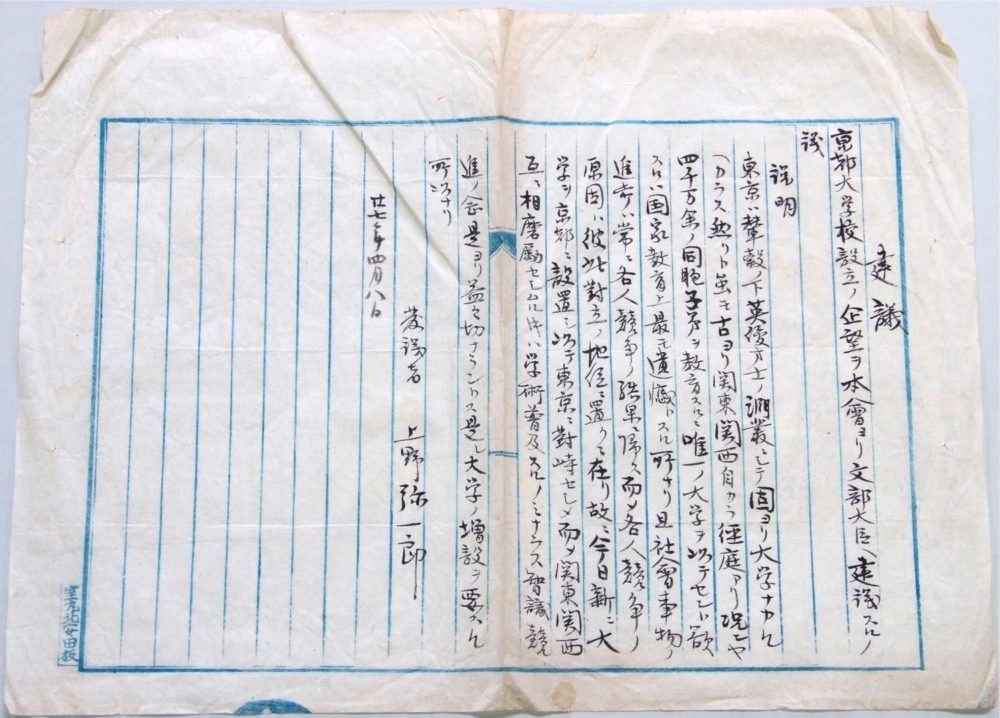 建議
京都大学校設立ノ企望ヲ本會ヨリ文部大臣ヘ建議スルノ
議
説明
東京ハ輦轂ノ下英俊才士ノ淵叢ニシテ固ヨリ大学ナカル
ヘカラス然リト虽モ古ヨリ関東関西自カラ径庭アリ況ンヤ
四千万余ノ同胞子弟ヲ教育スルニ唯一ノ大学ヲ以テセント欲
スルハ国家教育上最モ遺憾トスル所ナリ且社會事物ノ
進歩ハ常ニ各人競争ノ結果ニ帰ス而メ各人競争ノ
原因ハ彼此對立ノ地位ニ置クニ在リ故ニ今日新ニ大
学ヲ京都ニ設置シ以テ東京ニ對峙セシメ而メ関東関西
互ニ相磨励セシムルトキハ学術普及スルノミナラス智識競
進ノ念是ヨリ益々切ナラントス是レ大学ノ増設ヲ要スル
所以ナリ
廿七年四月八日
発議者 上野弥一郎